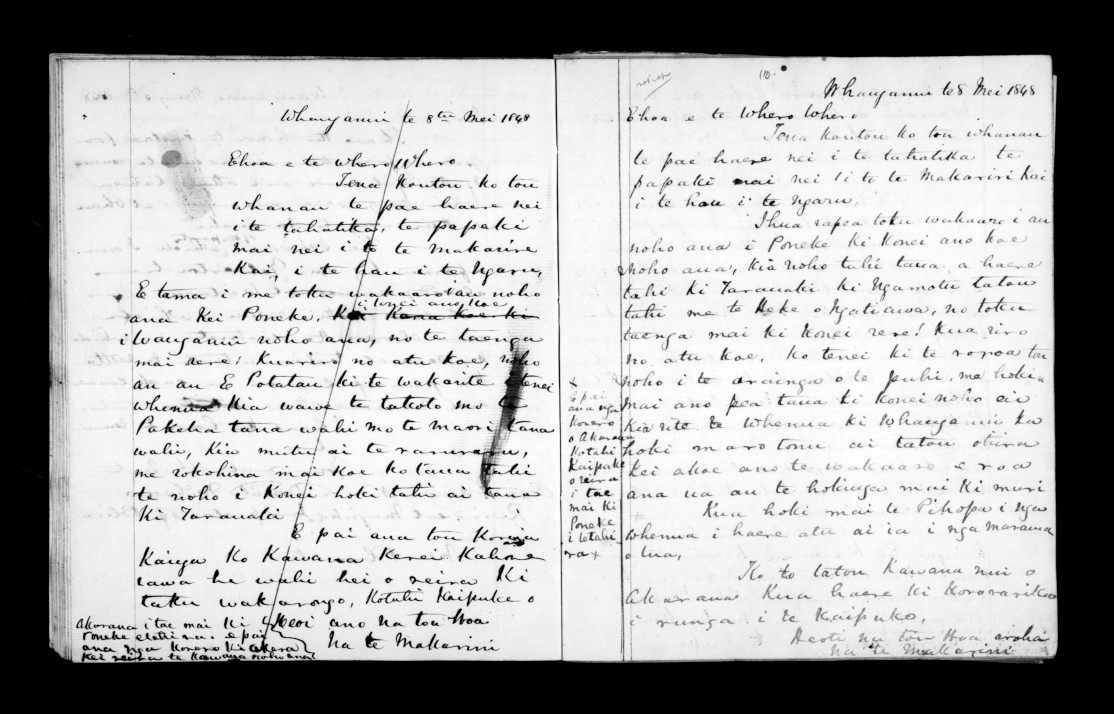 Whanganui te 8th Mei 1848
Ehoa e te Whero Whero
Tena Koutou ko tou
whanau te pae haere nei
i te tahatika, te papaki
mai nei i te te makarire
Kai, i te hau i te Ngaru,
E tama i me toku wakaaro au noho
i konei ano, koe
ana Kei Poneke,
i Wanganui noho ana, no te taenga
mai rere! Kuariro no atu koe, noho
au au E Potatau ki te wakarite i tenei
whenua Kia wawe te takoto mo te
Pakeha tana wahi mo te maori tana
wahi, Kia mutu ai te raruraru,
me rokohina mai koe ko taua tahi
te noho i Konei hoki tahi ai taua
Ki Taranaki
E pai ana tou
Kainga Ko Kawana Kerei Kahore
rawa he wahi hei o reira Ki
taku wakarongo, Kotahi Kaipuke o
Akarana i tae mai ki
Poneke etahi ra. e pai
ana nga Korero Ki
Kei reira te Kawana noho ana
Heoi ano na tou Hoa
Na te Makarini
110.
Whanganui te 8 Mei 1848
Ehoa e te Whero Whero
Tena Koutou ko tou whanau
te pae haere nei i te tahatika te
papaki mai nei i to te Makariri Kai
i te hau i te ngaru.
I hua rapea toku wakaaro i au
noho ana i Poneke Ki Konei ano koe
noho ana, Kia noho tahi taua, a haere
tahi Ki Taranaki Ki Ngamotu tatou
tahi me te Heke o Ngatiawa, no toku
taenga mai ki Konei rere! Kua riro
no atu koe, Ko tenei ki te roroa tau
noho i te arainga o te puhi, me hoki
mai ano pea taua ki konei noho ai
Kia rite te Whenua ki Whanganui ka
hoki maro tonu ai tatou otiira
Kei akoe ano te wakaaro e roa
ana ua au te hokinga mai Ki muri
Kua hoki mai te Pihopa i nga
whenua i haere atu ai ia i nga marama
o tua,
Ko to tatou Kawana nui o
Akarana Kua haere ki Kororarika
i runga i te Kaipuke.
Heoti na tou Hoa aroha
na te Makarini
x
E pai
ana nga
Korero
o Akarana
Kotahi
Kaipuke
o reira
i tae
mai Ki
Poneke
i tetahi
ra x